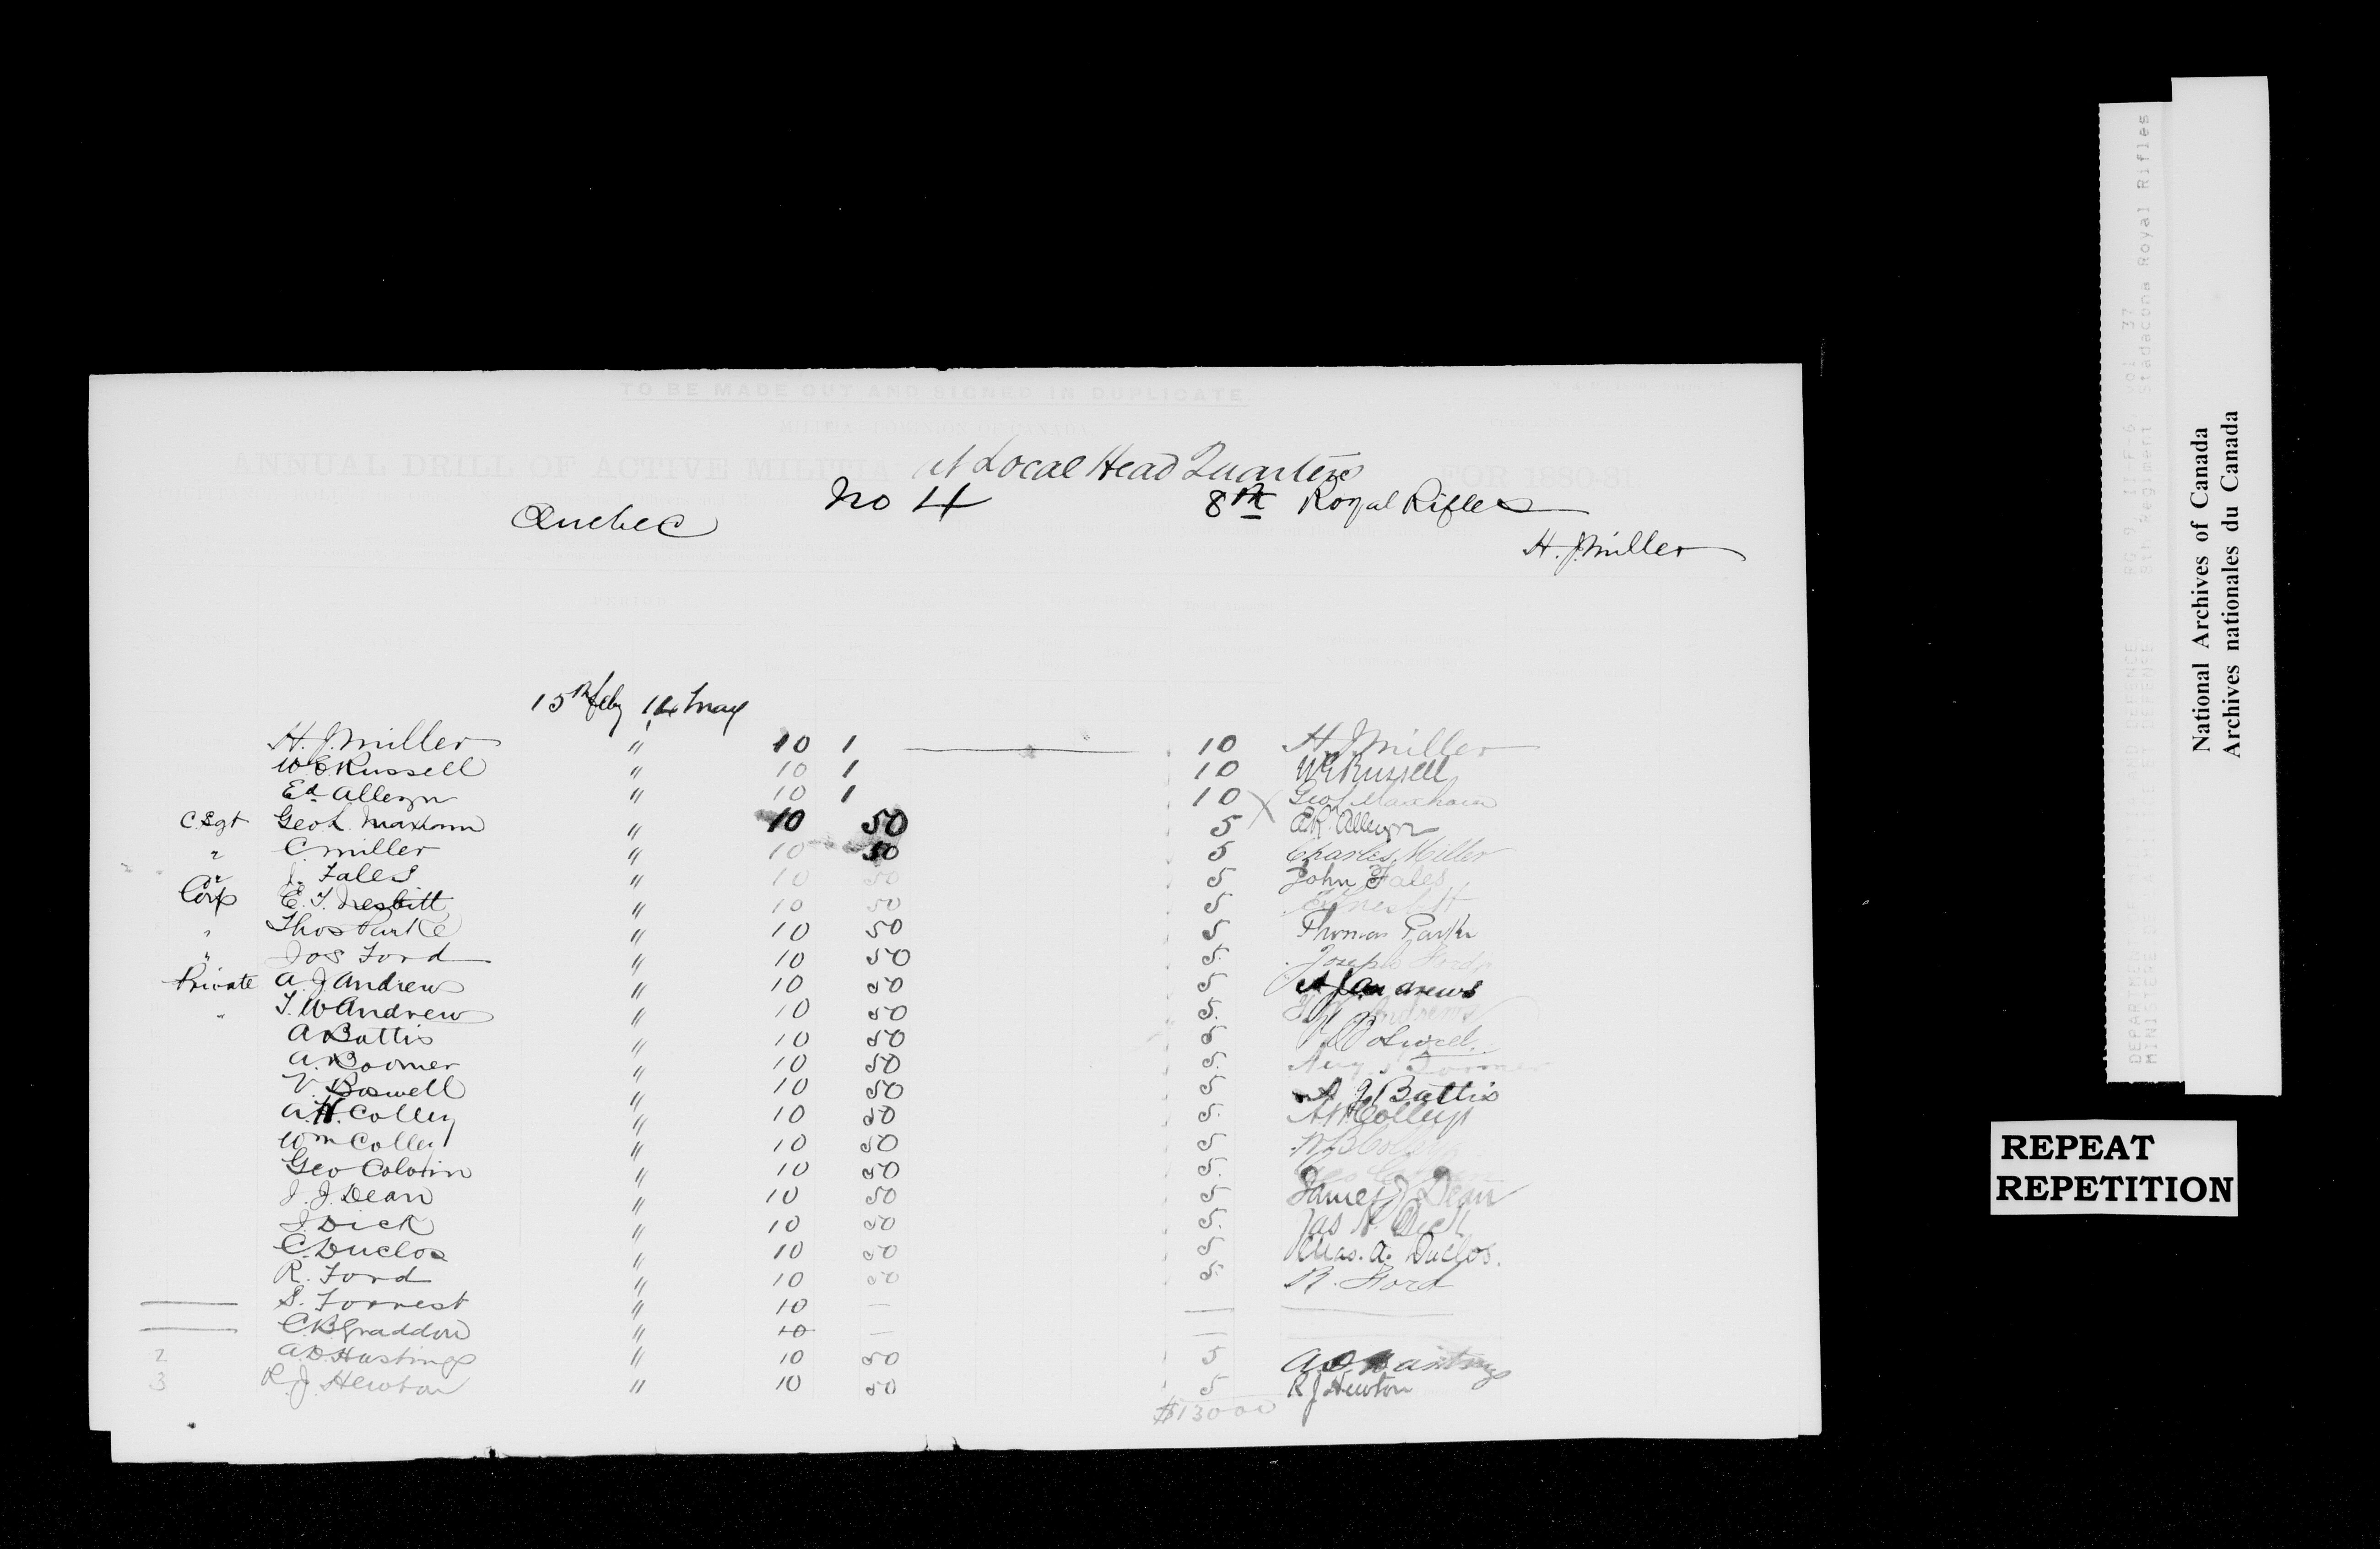 TO BE MADE OUT AND SIGNED IN DUPLICATE.
MILITIA—DOMINION OF CANADA.
ANNUAL DRILL OF ACTIVE MILITIA at Local Head Quarters FOR 1880-81.
Quebec No 4 8th Royal Rifles
H. J. Miller
PERIOD
15th Feby 14 May
H. J. Miller " 10 1 10 H. J. Miller
W E Russell " 10 1 10 W E Russell
Ed Alleyn " 10 1 10 Geo L Maxham
C. Sgt Geo L. Maxham " 10 50 5 E R Alleyn
" C Miller " 10 50 5 Charles Miller
" J. Fales " 10 50 5 John Fales
Corp E. T. Nesbitt " 10 50 5 E T Nesbitt
" Thos Parke " 10 50 5 Thomas Parke
" Jos Ford " 10 50 5 Joseph Ford
Private A. J. Andrews " 10 50 5 A J Andrews
" T. W Andrew " 10 50 5 Andrews
A Battis " 10 50 5
A. Boomer " 10 50 5 Boomer
V. Boswell " 10 50 5 A J Battis
A. H. Colley " 10 50 5 A H Colley
Wm Colley " 10 50 5 W B Colley
Geo Colvin " 10 50 5 Geo
J. J. Dean " 10 50 5 James J Dean
J. Dick " 10 50 5 Jas H. Dick
C. Duclos " 10 50 5 Chas. A. Duclos.
R. Ford " 10 50 5 R. Ford
S. Forrest " 10 —
C. B. Graddon " 10 —
2 A. D. Hastings " 10 50 5 A. D. Hastings
3 R. J. Hewton " 10 50 5 R J Hewton
$130 00
DEPARTMENT OF MILITIA AND DEFENCE RG 9 II-F-6, vol. 37
MINISTERE DE LA MILICE ET DEFENSE 8th Regiment, Stadacona Royal Rifles
National Archives of Canada
Archives nationales du Canada
REPEAT
REPETITION